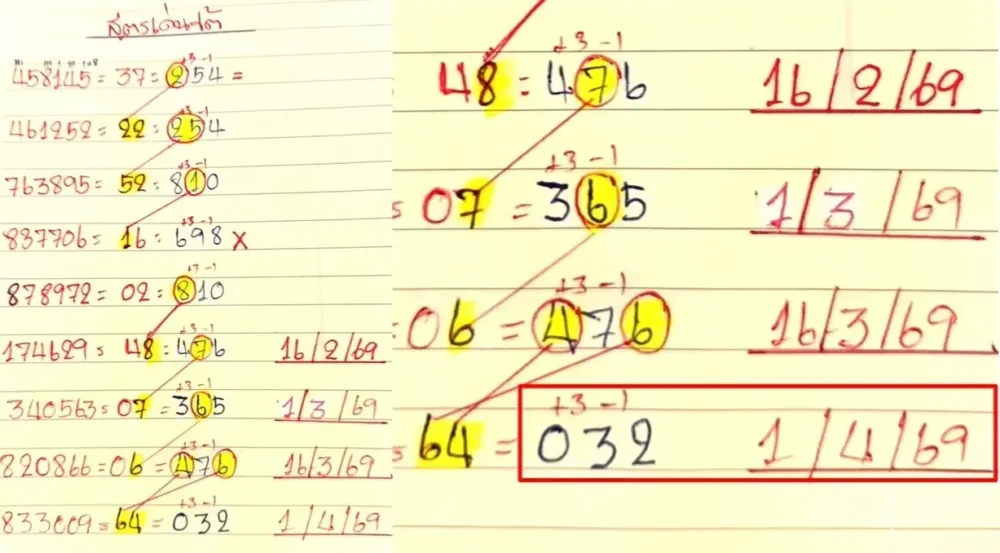 สูตรเด่นใต้
+3 -1
458145 = 37 = 254 =
461252 = 22 = 254
+3 -1
763895 = 52 = 810
+3 -1
837706 = 16 = 698 X
+3 -1
878972 = 02 = 810
+3 -1
174629 = 48 = 476 16/2/69
+3 -1
340563 = 07 = 365 1/3/69
+3 -1
820866 = 06 = 476 16/3/69
+3 -1
833009 = 64 = 032 1/4/69
+3 -1
48 = 476 16/2/69
+3 -1
07 = 365 1/3/69
+3 -1
06 = 476 16/3/69
+3 -1
64 = 032 1/4/69